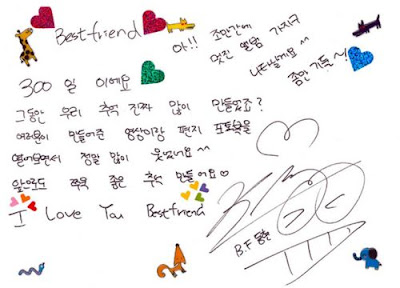 Bestfriend
300일 이에요
그동안 우리 추억 진짜 많이 만들었죠?
여러분이 만들어준 영상이랑 편지 포토북을
열어보면서 정말 많이 웃었어요^^
앞으로도 쭈욱 좋은 추억 만들어요♡
I Love You Bestfriend
아!! 조만간에
멋진 앨범 가지구
나타날게요^^
좀만 기둘~!
B.F 동현